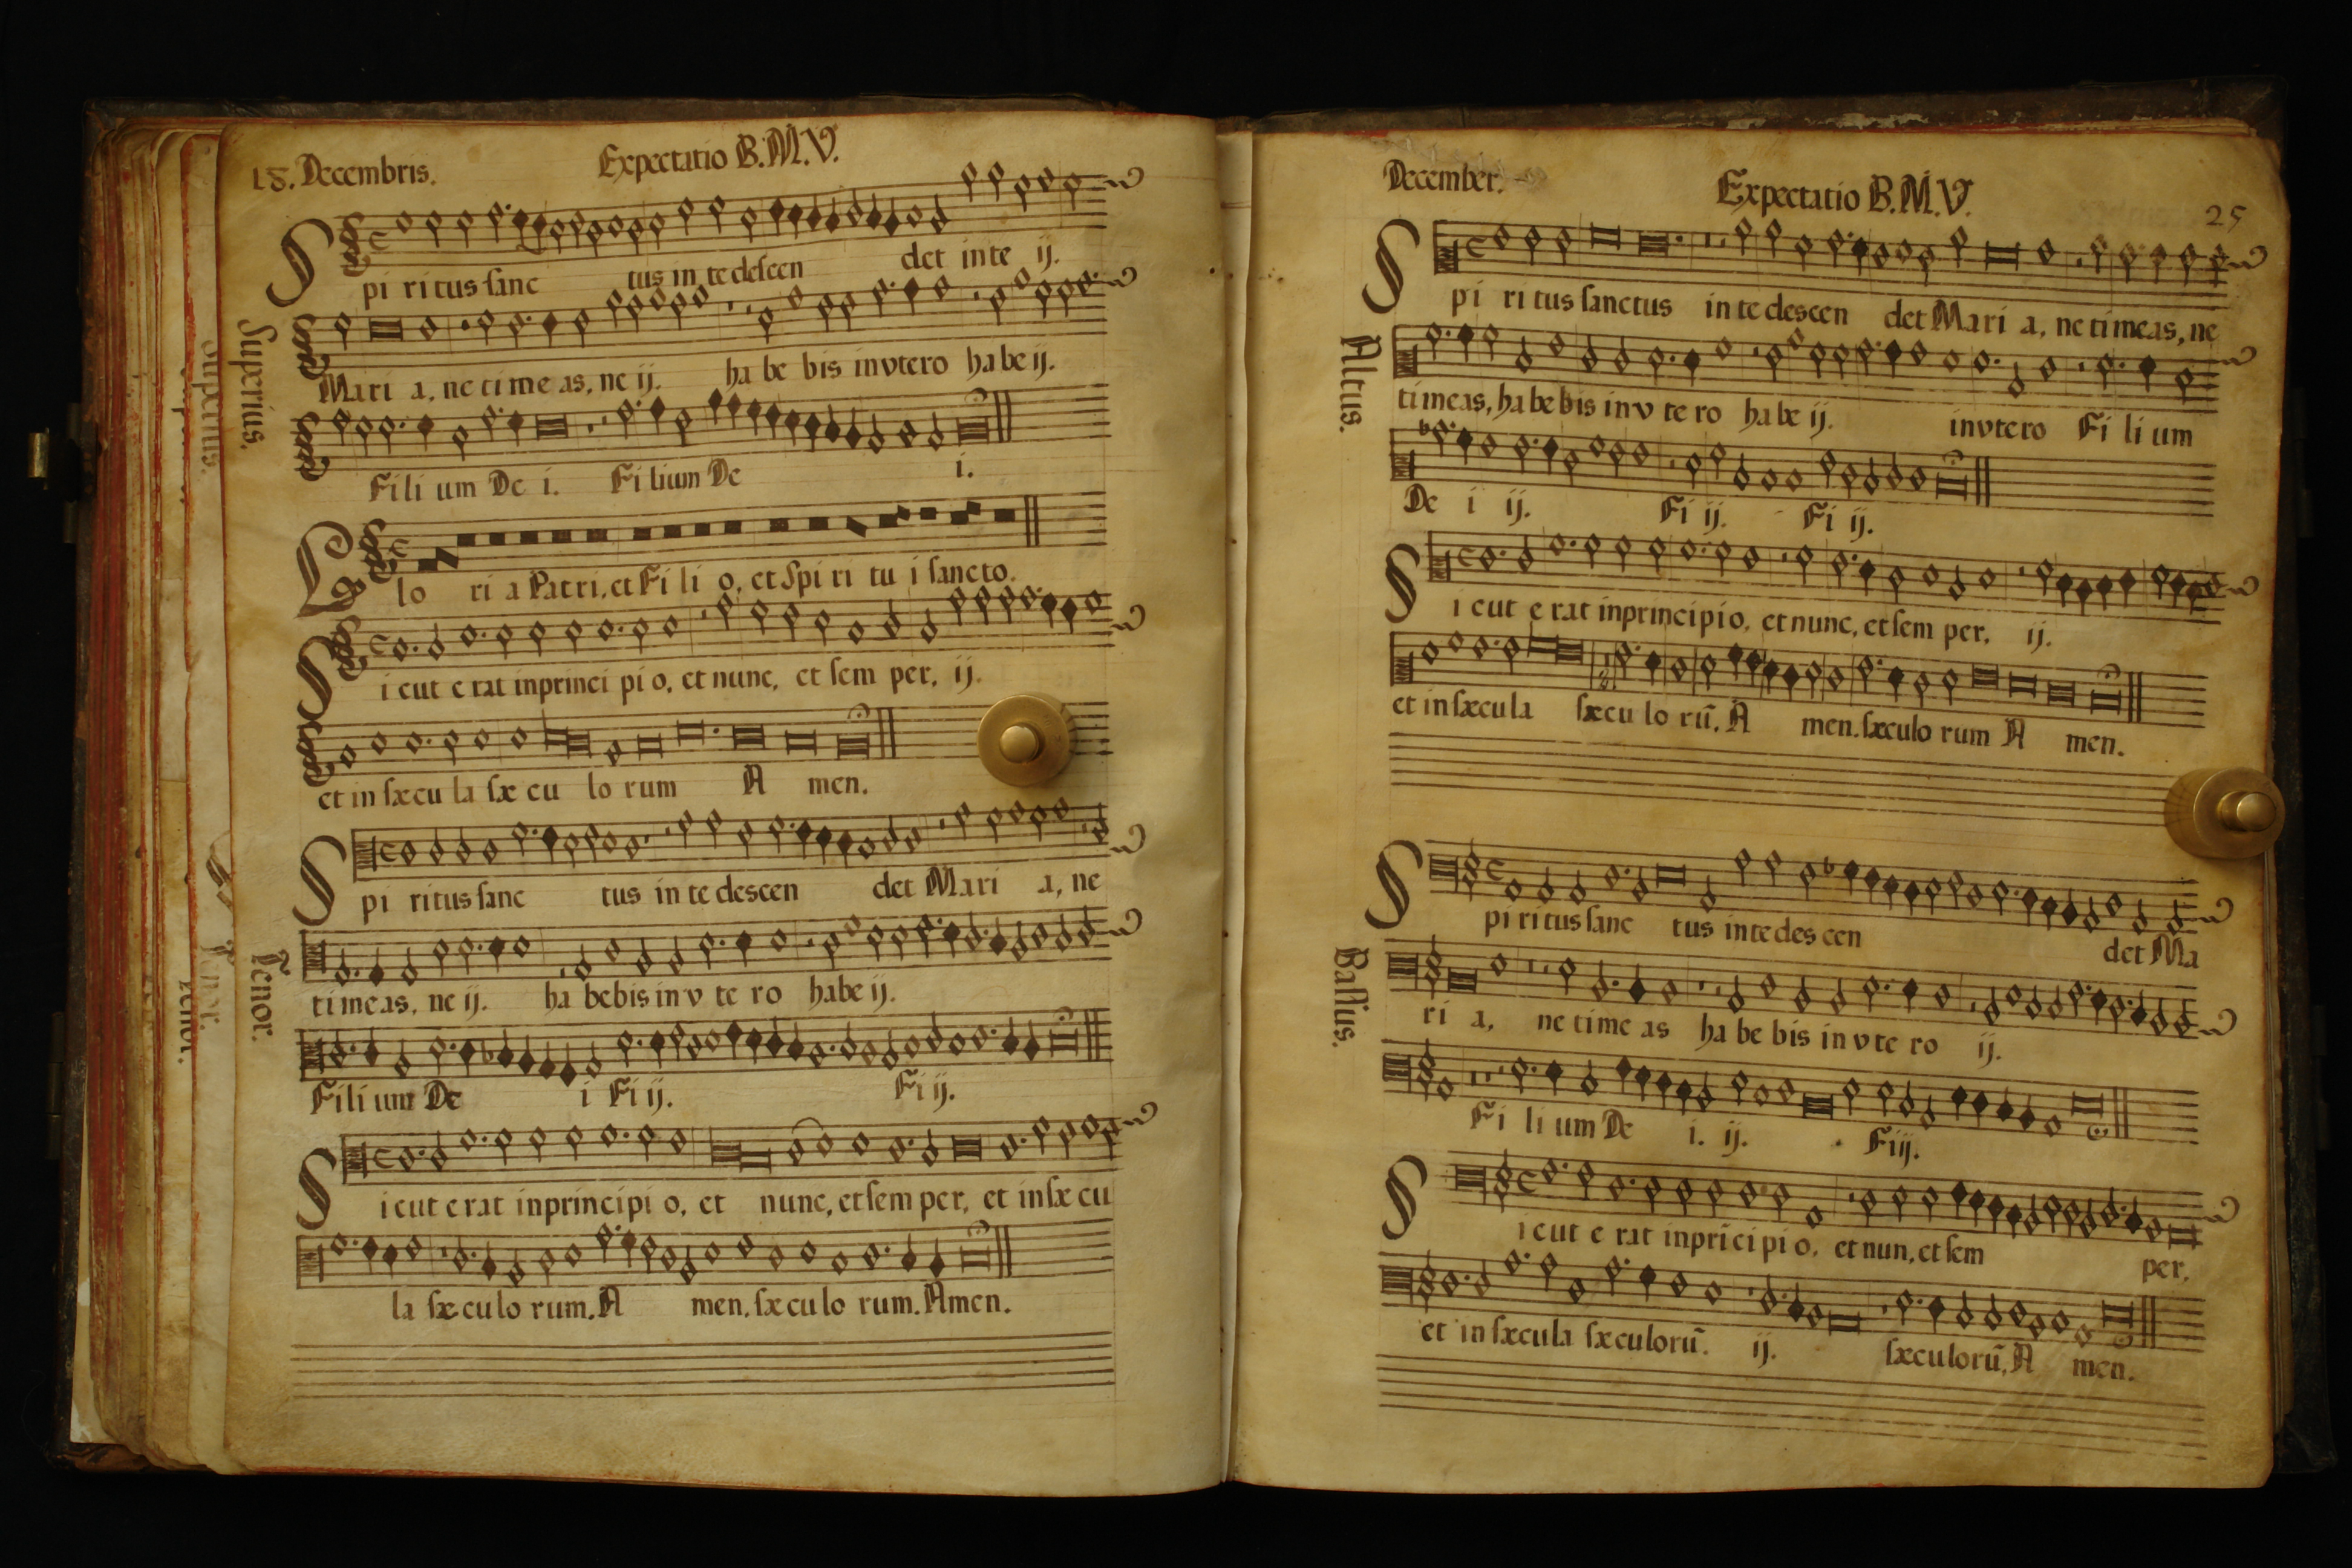 18. Decembris. Expectatio B.M.V.
Spi ritus sanc tus in te descen det in te ij.
Superius.
Mari a, ne time as, ne ij. habe bis invtero habe ij.
Fili um De i. Fi lium De i.
Glo ri a Patri, et Fi li o, et Spi ri tu i sancto.
Sicut e rat in princi pi o, et nunc, et sem per, ij.
et in sæcu la sæ cu lo rum A men.
Spi ritus sanc tus in te descen det Mari a, ne
Tenor.
time as, ne ij. ha bebis in v te ro habe ij.
Fili um De i Fi ij. Fi ij.
Sicut e rat in principi o, et nunc, et sem per, et in sæ cu
la sæ cu lo rum. A men. sæ cu lo rum. Amen.
December. Expectatio B.M.V.
25
Spi ri tus sanctus in te descen det Mari a, ne timeas, ne
Altus.
timeas, habebis in v te ro habe ij. invtero Fi li um
De i ij. Fi ij. Fi ij.
Sicut e rat in principio, et nunc, et sem per, ij.
et in sæcula sæcu lo rū. A men. sæculo rum A men.
Spi ritus sanc tus in te des cen det Ma
Bassus.
ri a, ne time as ha be bis in v te ro ij.
Fi li um De i. ij. Fi ij.
Sicut e rat in prīcipi o, et nun, et sem per,
et in sæcula sæculorū. ij. sæculorū, A men.